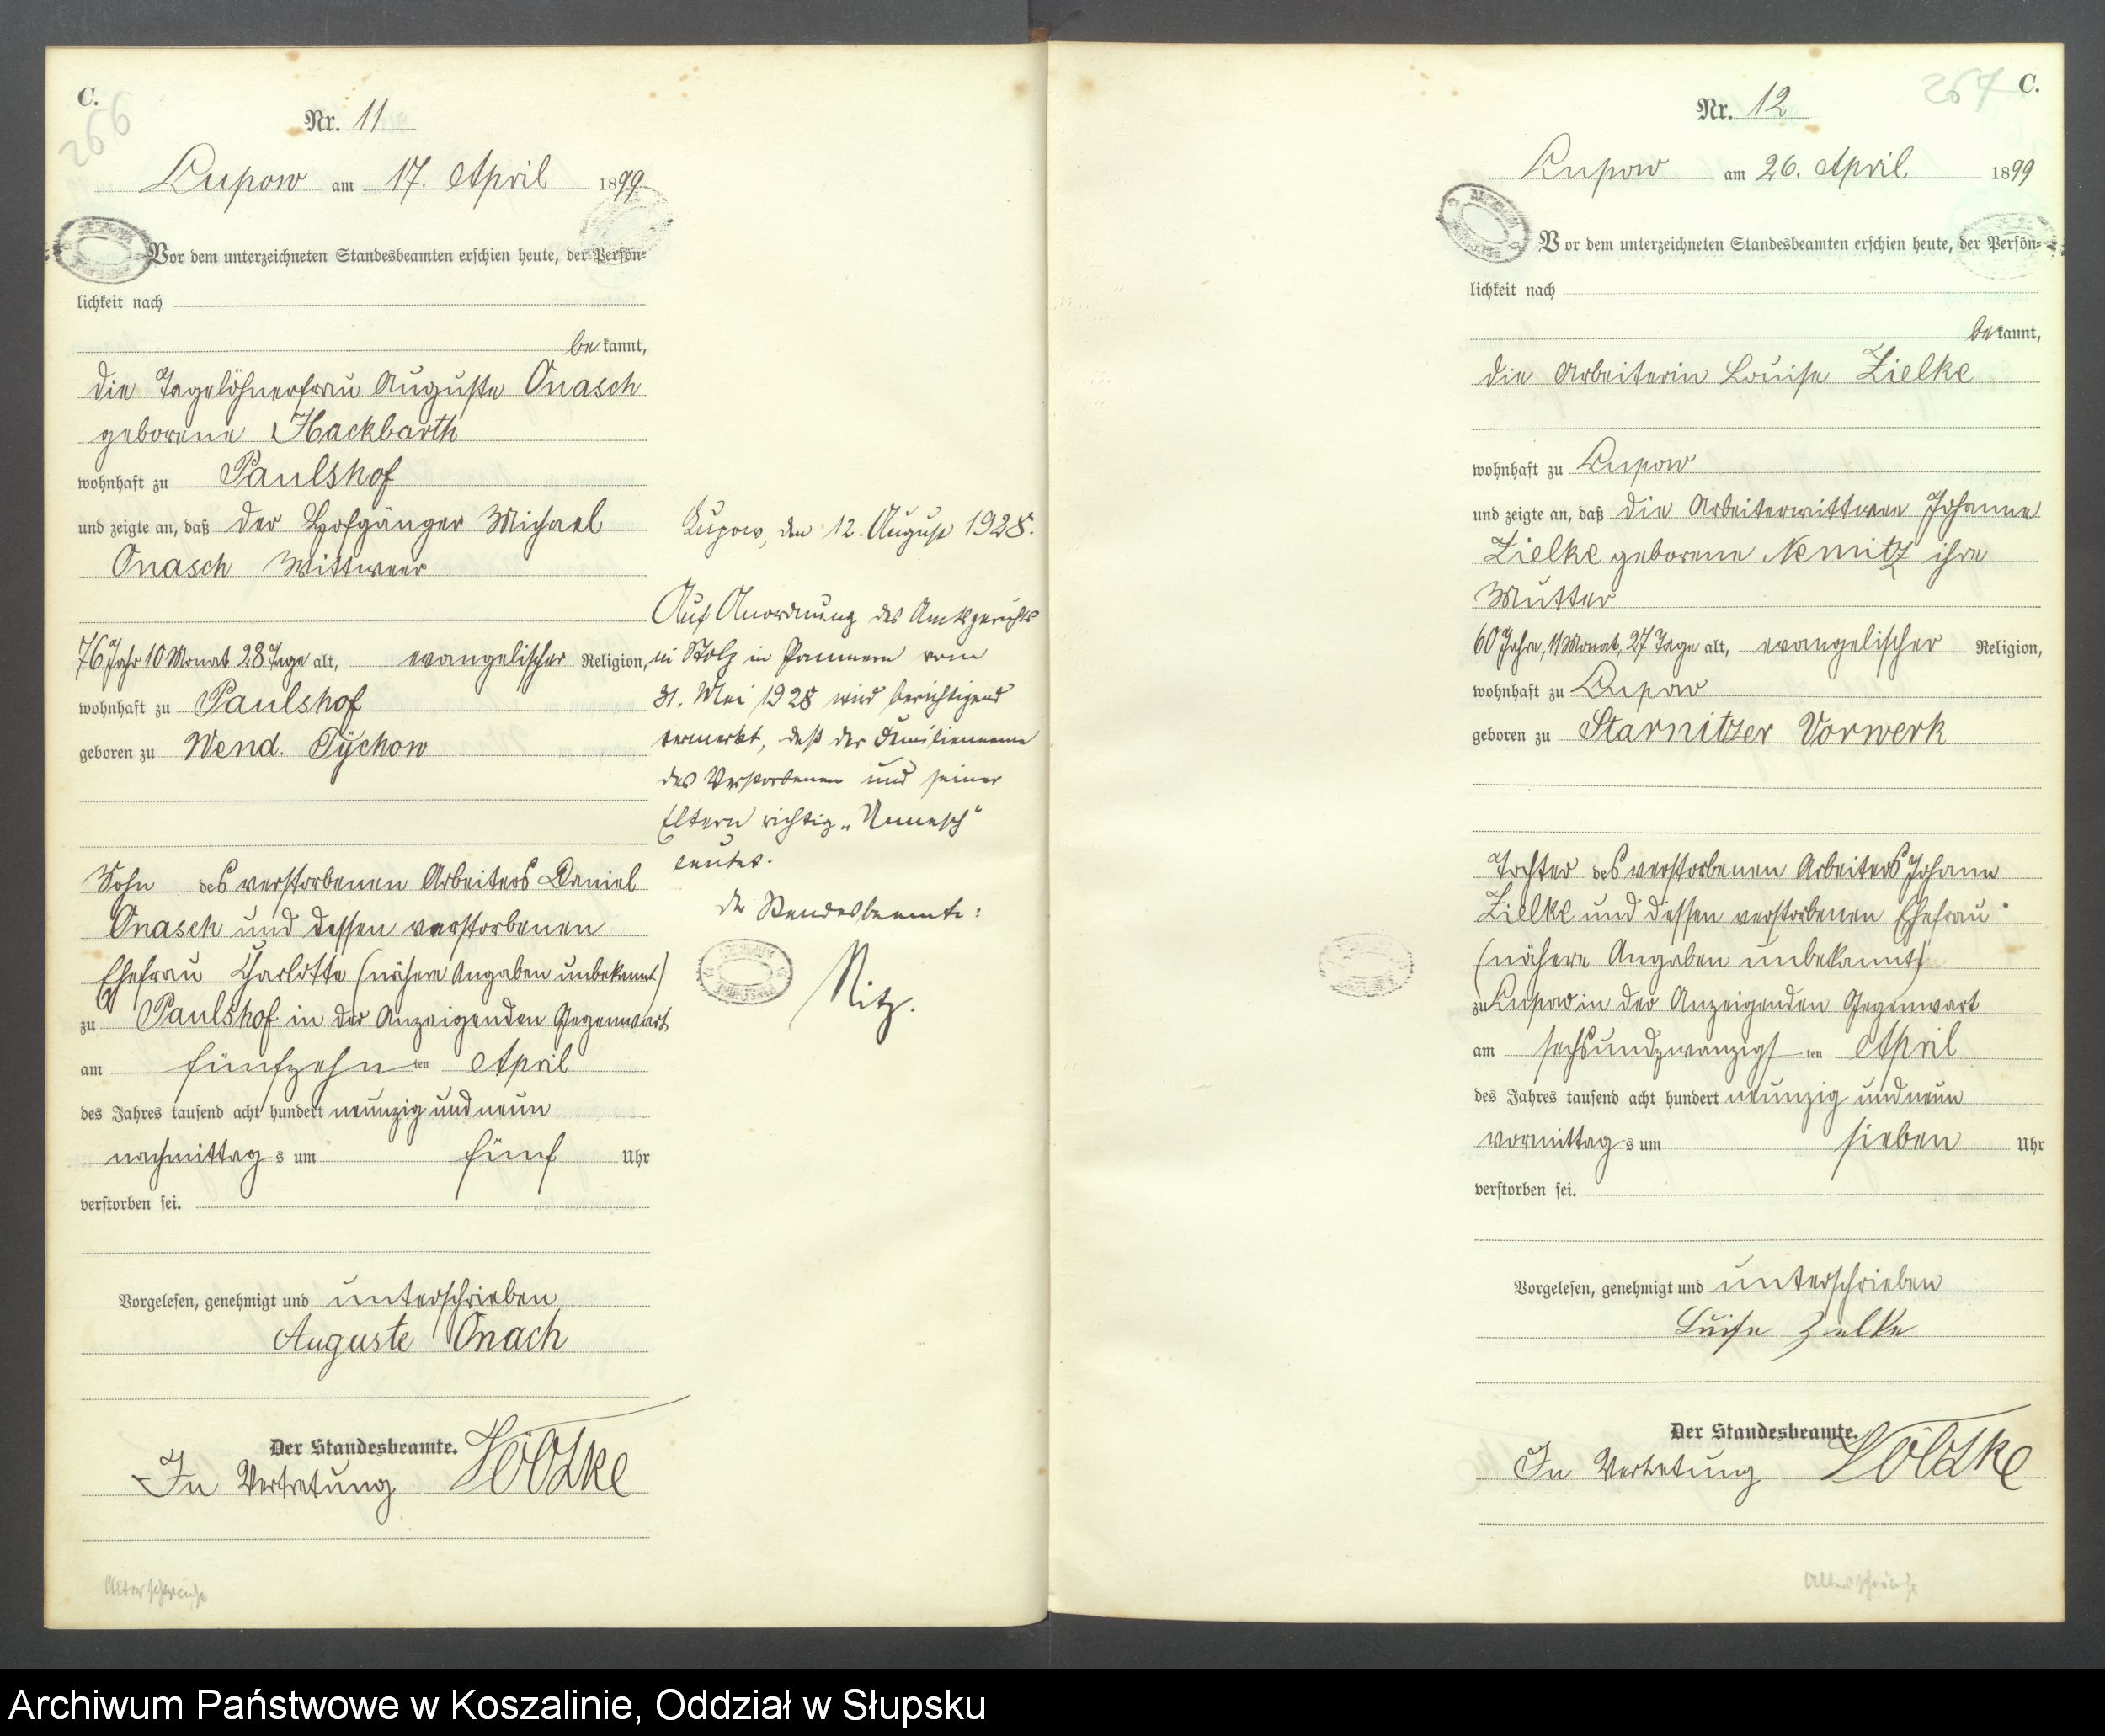 C.
266
Nr. 11
Lupow am 17. April 1899
Vor dem unterzeichneten Standesbeamten erschien heute, der Persön=
lichkeit nach
be kannt,
die Tagelöhnerfrau Auguste Onasch
geborene Hackbarth
wohnhaft zu Paulshof
und zeigte an, daß der Hofgänger Michael
Onasch Wittwer
76 Jahr 10 Monat 28 Tage alt, evangelischer Religion,
wohnhaft zu Paulshof
geboren zu Wend. Tychow
Sohn des verstorbenen Arbeiters Daniel
Onasch und dessen verstorbenen
Ehefrau Charlotte (nähere Angaben unbekannt)
zu Paulshof in der Anzeigenden Gegenwart
am fünfzehn ten April
des Jahres tausend acht hundert neunzig und neun
nachmittag s um fünf Uhr
verstorben sei.
Vorgelesen, genehmigt und unterschrieben
Auguste Onach
Der Standesbeamte.
In Vertretung
Altersschwäche
Lupow, den 12. August 1928.
Auf Anordnung des Amtsgerichts
in Stolp in Pommern vom
31. Mai 1928 wird berichtigend
vermerkt, daß der Familienname
des Verstorbenen und seiner
Eltern richtig „Unnasch“
lautet.
Der Standesbeamte:
Nitz.
267
C.
Nr. 12
Lupow am 26. April 1899
Vor dem unterzeichneten Standesbeamten erschien heute, der Persön=
lichkeit nach
be kannt,
die Arbeiterin Louise Zielke
wohnhaft zu Lupow
und zeigte an, daß die Arbeiterwittwe Johanne
Zielke geborene Nemitz ihre
Mutter
60 Jahre, 11 Monat, 27 Tage alt, evangelischer Religion,
wohnhaft zu Lupow
geboren zu Starnitzer Vorwerk
Tochter des verstorbenen Arbeiters Johann
Zielke und dessen verstorbenen Ehefrau
(nähere Angaben unbekannt)
zu Lupow in der Anzeigenden Gegenwart
am sechsundzwanzigs ten April
des Jahres tausend acht hundert neunzig und neun
vormittag s um sieben Uhr
verstorben sei.
Vorgelesen, genehmigt und unterschrieben
Luise Zielke
Der Standesbeamte.
In Vertretung
Altersschwäche
Archiwum Państwowe w Koszalinie, Oddział w Słupsku